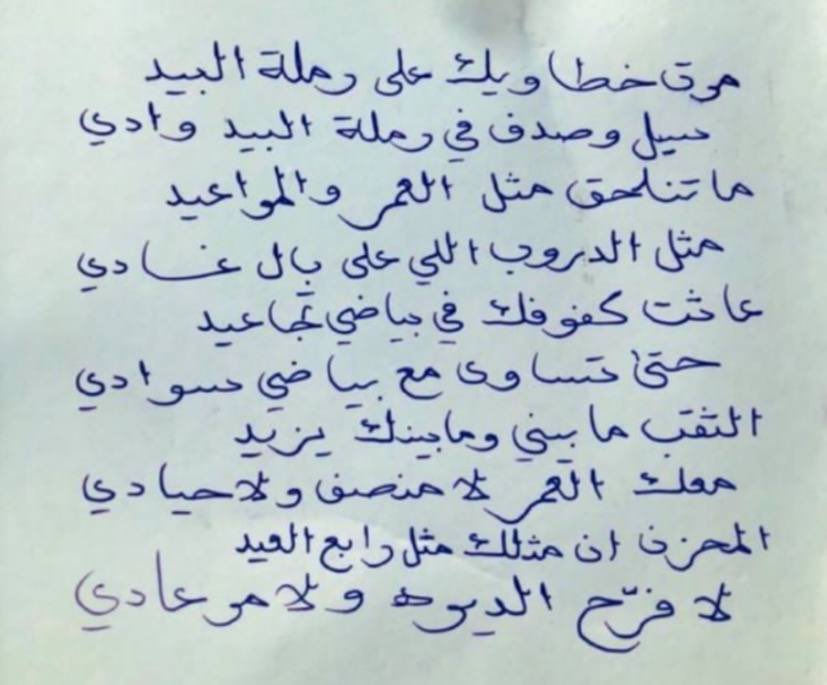 مرت خطاويك على رملة البيد
سيل وصدف في رملة البيد وادي
ما تنلحق مثل العمر والمواعيد
مثل الدروب اللي على بال غادي
عاثت كفوفك في بياضي تجاعيد
حتى تساوى مع بياضي سوادي
الثقب ما بيني وما بينك يزيد
معك العمر لا منصف ولا حيادي
المحزن ان مثلك مثل رابع العيد
لا فرّح الديره ولا مر عادي